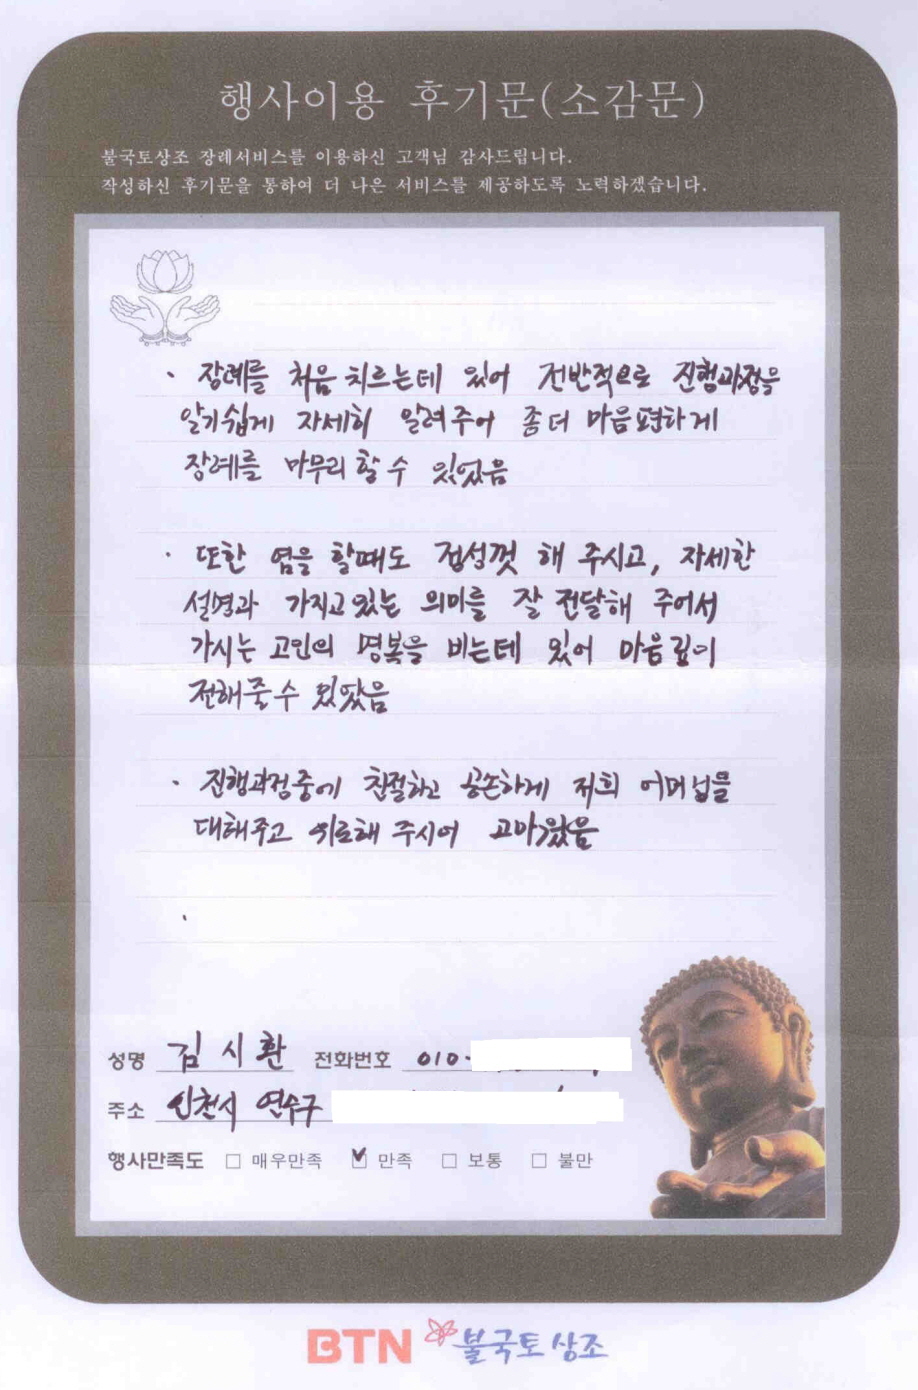 행사이용 후기문(소감문)
불국토상조 장례서비스를 이용하신 고객님 감사드립니다.
작성하신 후기문을 통하여 더 나은 서비스를 제공하도록 노력하겠습니다.
· 장례를 처음 치르는데 있어 전반적으로 진행과정을
알기쉽게 자세히 알려주어 좀더 마음편하게
장례를 마무리 할 수 있었음
· 또한 염을 할때도 정성껏 해 주시고, 자세한
설명과 가지고있는 의미를 잘 전달해 주어서
가시는 고인의 명복을 비는데 있어 마음깊이
전해줄수 있었음
· 진행과정중에 친절하고 공손하게 저희 어머님을
대해주고 위로해 주시어 고마웠음
성명 김시환 전화번호 010-
주소 인천시 연수구
행사만족도 □ 매우만족 ☑ 만족 □ 보통 □ 불만
BTN 불국토상조